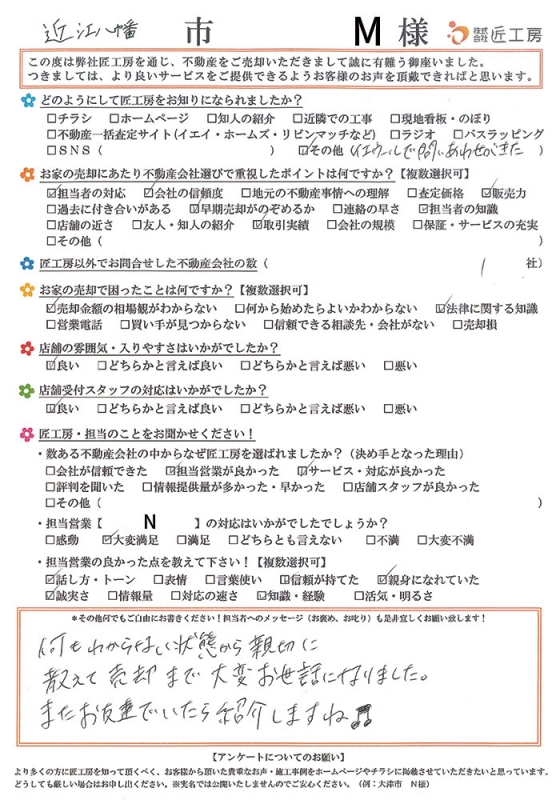 近江八幡 市 M 様 株式会社 匠工房
この度は弊社匠工房を通じ、不動産をご売却いただきまして誠に有難う御座いました。
つきましては、より良いサービスをご提供できるようお客様のお声を頂戴できればと思います。
どのようにして匠工房をお知りになられましたか？
□チラシ □ホームページ □知人の紹介 □近隣での工事 □現地看板・のぼり
□不動産一括査定サイト(イエイ・ホームズ・リビンマッチなど) □ラジオ □バスラッピング
□SNS ( ) ☑その他 (イエウールで問いあわせがきた )
お家の売却にあたり不動産会社選びで重視したポイントは何ですか？【複数選択可】
☑担当者の対応 ☑会社の信頼度 □地元の不動産事情への理解 □査定価格 ☑販売力
□過去に付き合いがある ☑早期売却がのぞめるか □連絡の早さ ☑担当者の知識
□店舗の近さ □友人・知人の紹介 ☑取引実績 □会社の規模 □保証・サービスの充実
□その他 ( )
匠工房以外でお問合せした不動産会社の数 ( 1 社)
お家の売却で困ったことは何ですか？【複数選択可】
☑売却金額の相場観がわからない □何から始めたらよいかわからない ☑法律に関する知識
□営業電話 □買い手が見つからない □信頼できる相談先・会社がない □売却損
店舗の雰囲気・入りやすさはいかがでしたか？
☑良い □どちらかと言えば良い □どちらかと言えば悪い □悪い
店舗受付スタッフの対応はいかがでしたか？
☑良い □どちらかと言えば良い □どちらかと言えば悪い □悪い
匠工房・担当のことをお聞かせください！
・数ある不動産会社の中からなぜ匠工房を選ばれましたか？（決め手となった理由）
□会社が信頼できた ☑担当営業が良かった ☑サービス・対応が良かった
□評判を聞いた □情報提供量が多かった・早かった □店舗スタッフが良かった
□その他 ( )
・担当営業【 N 】の対応はいかがでしたでしょうか？
□感動 ☑大変満足 □満足 □どちらとも言えない □不満 □大変不満
・担当営業の良かった点を教えて下さい！【複数選択可】
☑話し方・トーン □表情 □言葉使い ☑信頼が持てた ☑親身になれていた
☑誠実さ □情報量 □対応の速さ ☑知識・経験 □活気・明るさ
＊その他何でもご自由にお書きください！担当者へのメッセージ（お褒め、お叱り）も是非宜しくお願い致します！
何もわからない状態から親切に
教えて売却まで大変お世話になりました。
またお友達でいたら紹介しますね♫
【アンケートについてのお願い】
より多くの方に匠工房を知って頂くべく、お客様から頂いた貴重なお声・施工事例をホームページやチラシに掲載させていただきたいと思っています。
どうしても厳しい場合はお申し出ください。※実名では公開いたしませんのでご安心ください。（例：大津市 N様）